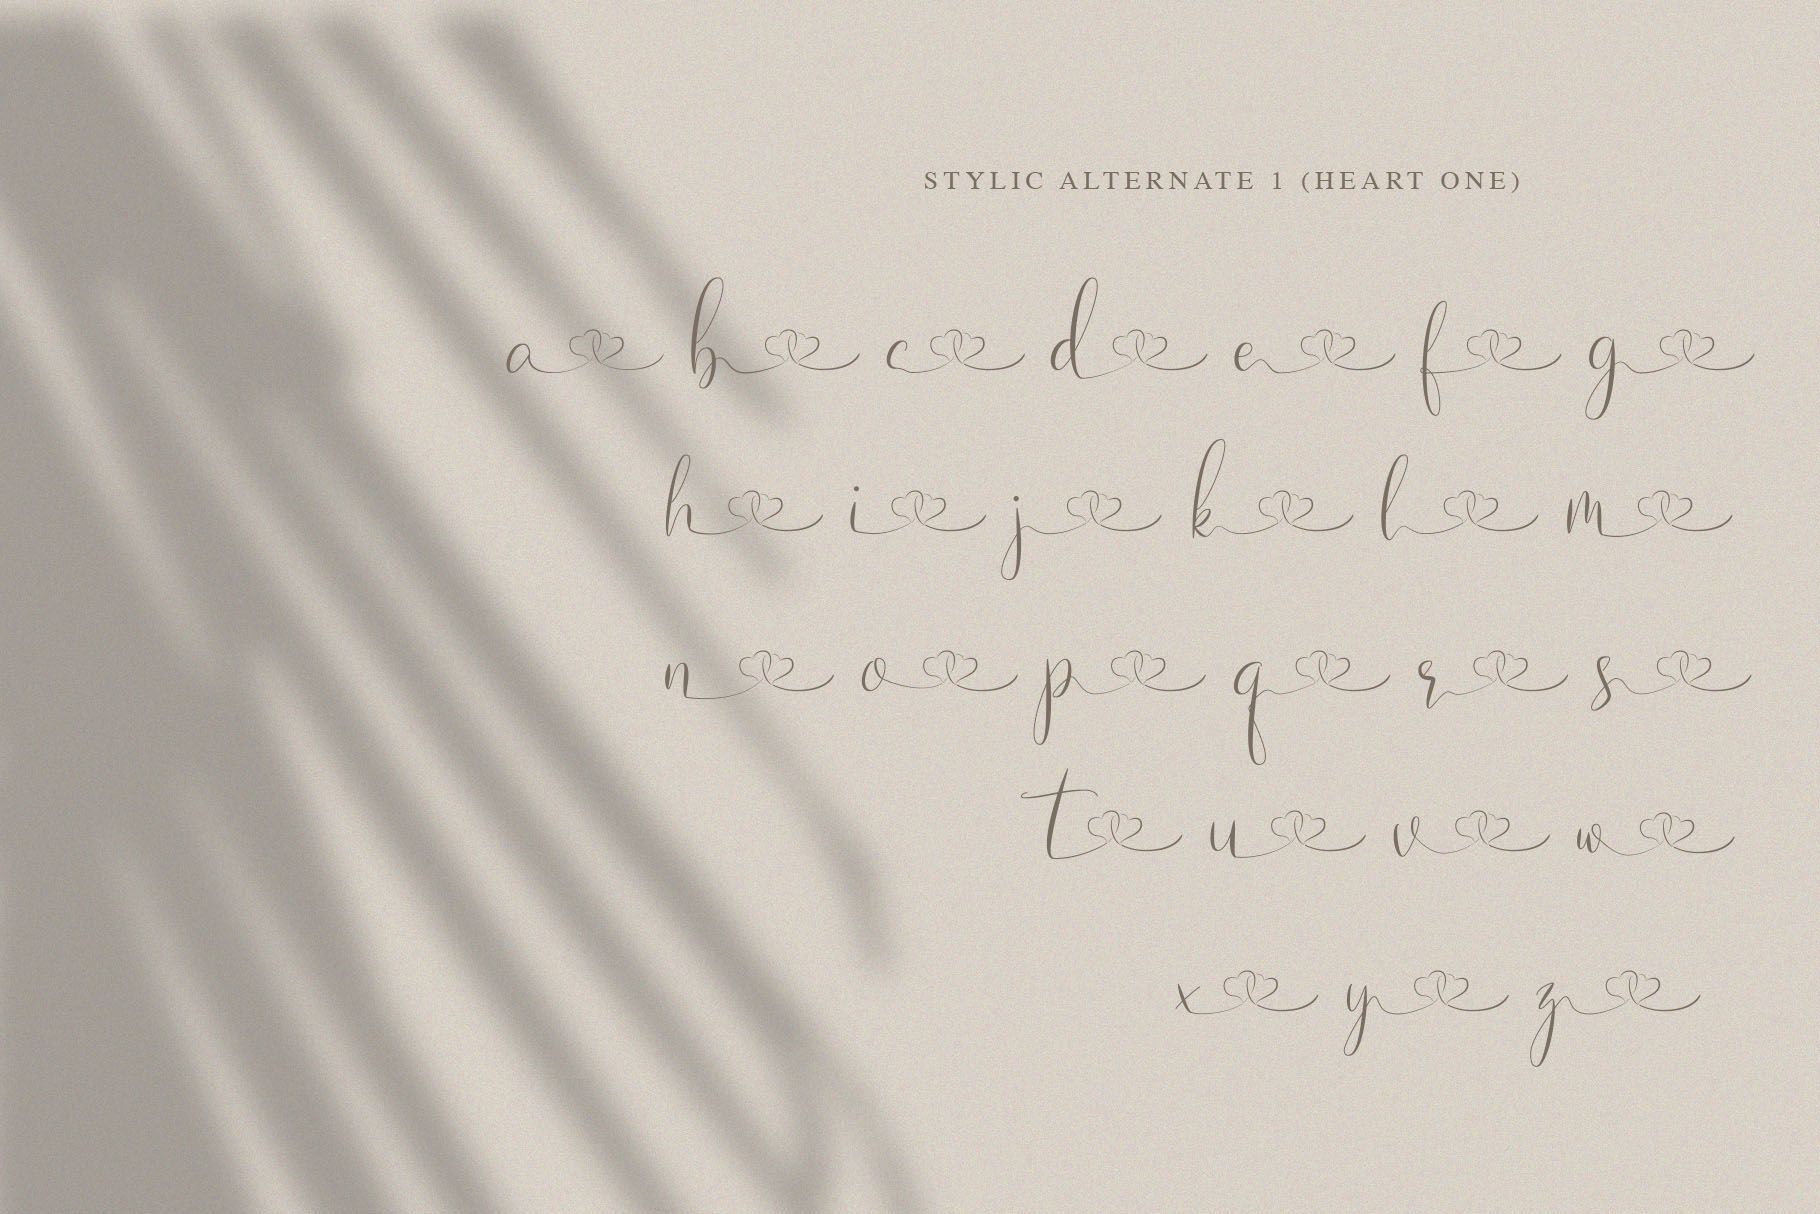 STYLIC ALTERNATE 1 (HEART ONE)
a b c d e f g
h i j k l m
n o p q r s
t u v w
x y z